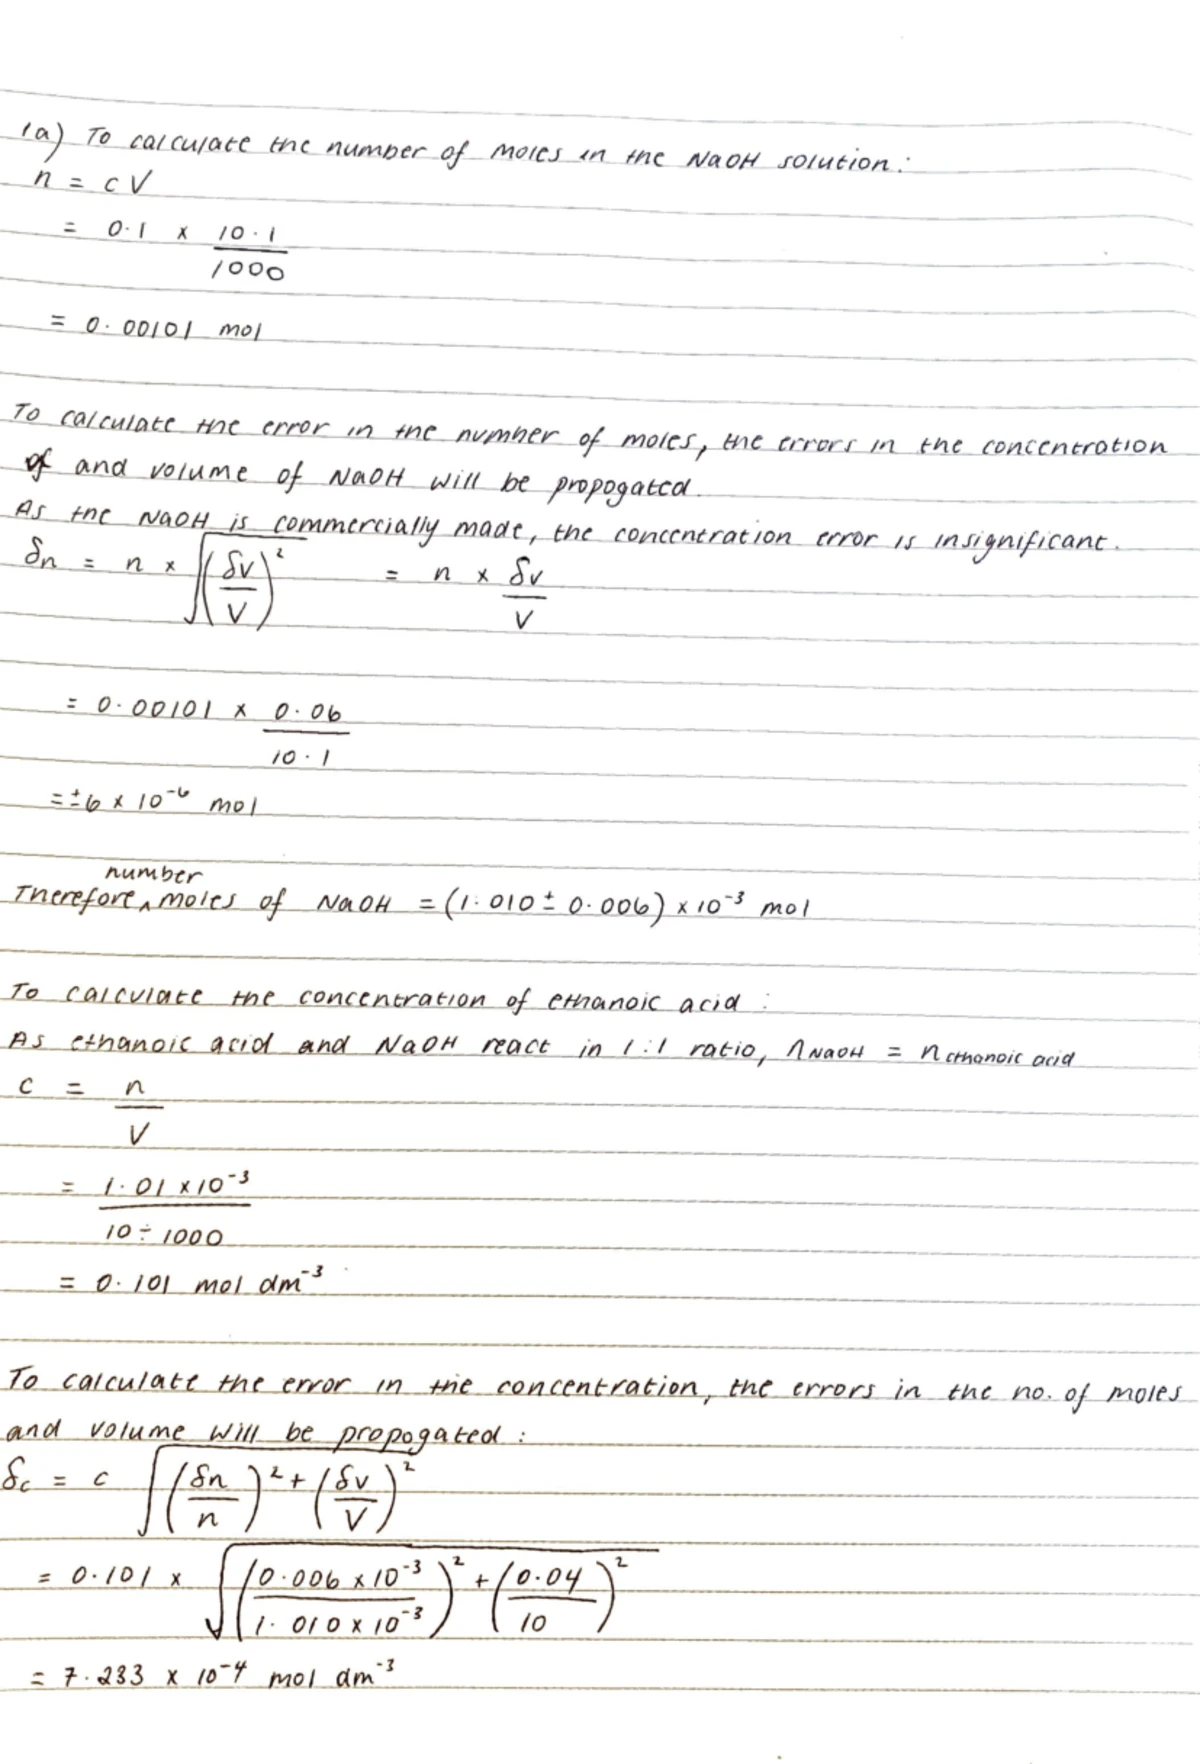 1a) To calculate the number of moles in the NaOH solution:
n = cV
= 0.1 x 10.1
1000
= 0.00101 mol
To calculate the error in the number of moles, the errors in the concentration
of and volume of NaOH will be propogated.
As the NaOH is commercially made, the concentration error is insignificant.
δn = n x √(δv/V)² = n x δv/V
= 0.00101 x 0.06
10.1
= ± 6 x 10⁻⁶ mol
number
Therefore ^ moles of NaOH = (1.010 ± 0.006) x 10⁻³ mol
To calculate the concentration of ethanoic acid :
As ethanoic acid and NaOH react in 1:1 ratio, n NaOH = n ethanoic acid
c = n
V
= 1.01 x 10⁻³
10 ÷ 1000
= 0.101 mol dm⁻³
To calculate the error in the concentration, the errors in the no. of moles
and volume will be propogated :
δc = c √(δn/n)² + (δv/V)²
= 0.101 x √(0.006 x 10⁻³/1.010 x 10⁻³)² + (0.04/10)²
= 7.233 x 10⁻⁴ mol dm⁻³